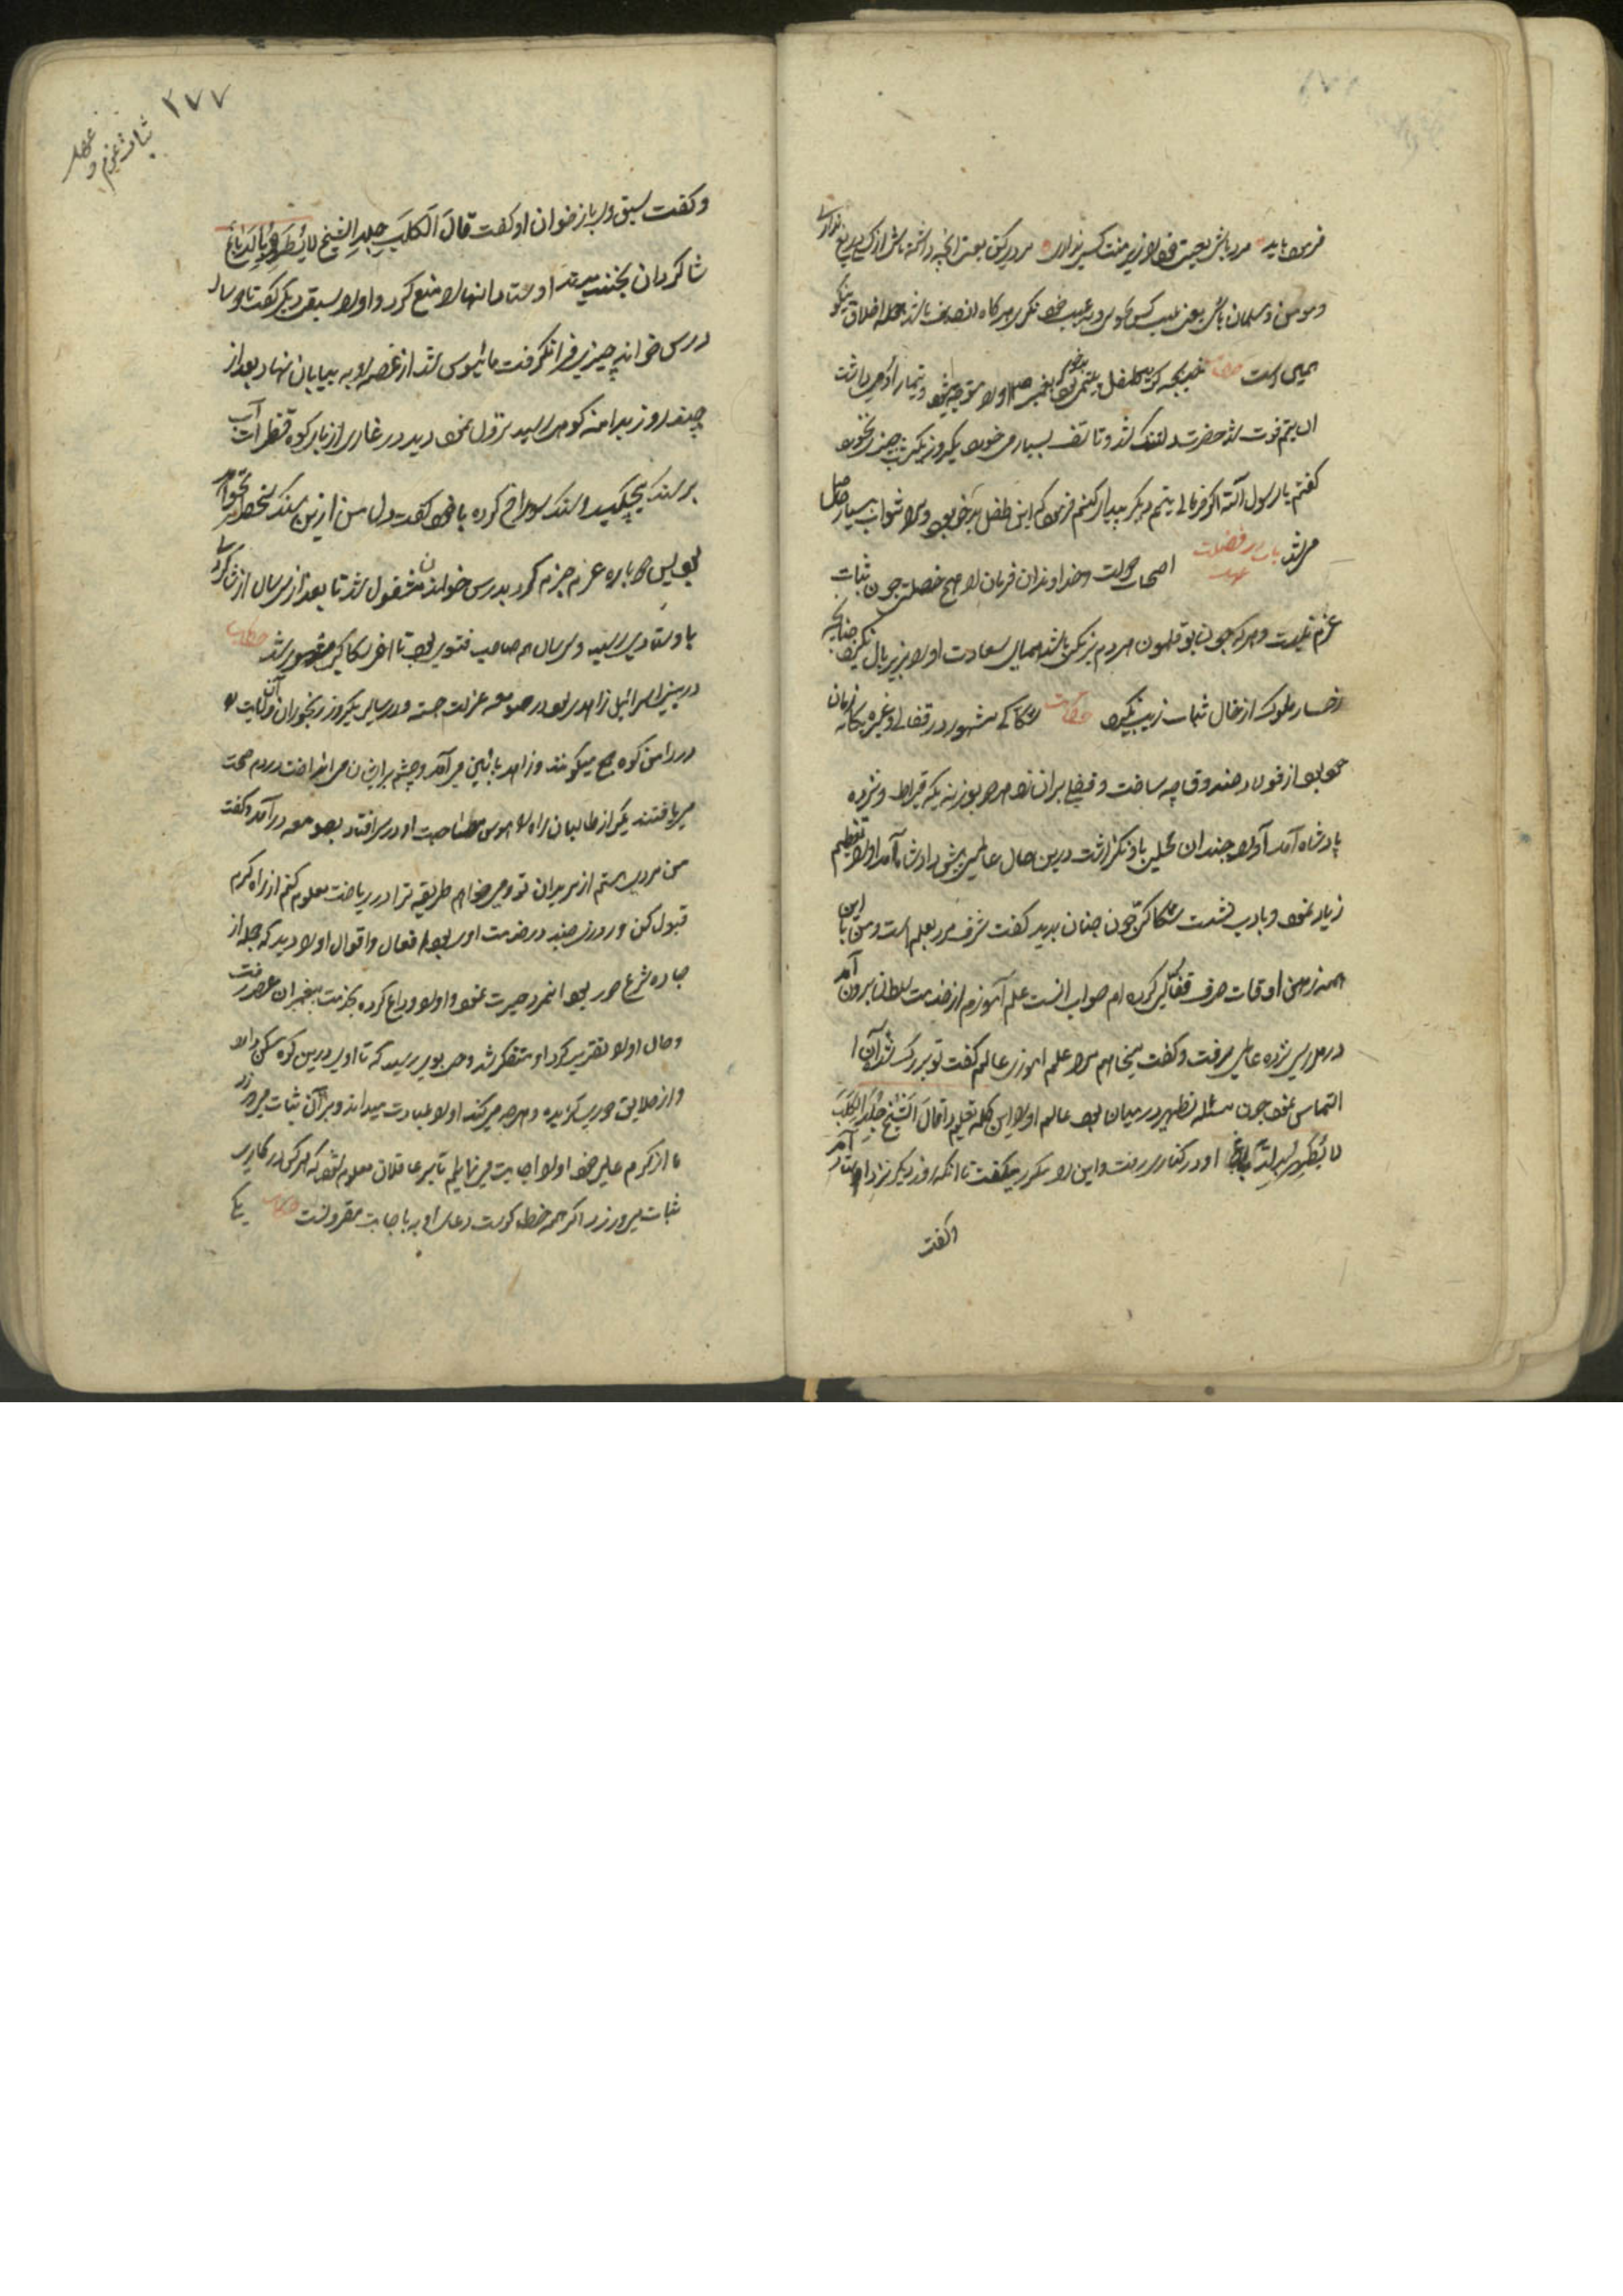 فرموده باید مرد باش یعنی خود را زیر منت کسی نیاری مردی کن یعنی آنچه داشته باشی از کسی دریغ نداری
و مومن و مسلمان باش یعنی عیب کس مگوی و به عیب خود نگر هرگاه انصاف باشد جمله اخلاق نیکو
همین است حکایت خدیجه طفل یتیمی پیغمبر او را و تیمار او می داشت
آن یتیم فوت شد حضرت دلتنگ شد و تاسف بسیار می خورد یکروز یکشب چیزی نخورد
گفتم یا رسول الله اگر فرمائی یتیم دیگر پیدا کنم فرمود که این طفل بدخو بود و مرا ثواب بسیار حاصل
می شد باب در فضیلت
اصحاب دولت و خداوندان فرمان را هیچ خصلت چون ثبات
عزم نیست و هر که چون بوقلمون هر دم برنگی باشد همای سعادت او را بزیر بال نگیرد چنانکه
رخسار ملوک از خال ثبات زیب گیرد حکایت سکاکی مشهور در قفلی و غیره یگانه زمان
خود بود از فولاد صندوقچه ساخت و قفلی بران زد همه بوزن یک قیراط و نزد
پادشاه آمد او را چندان تحسین باو نگذاشت درین حال عالمی پیش پادشاه آمد او را تعظیم
زیاد نمود و بادب نشست سکاکی چون چنان بدید گفت شرف مرد بعلم است و من تا این
همه زمان اوقات صرف قفلگری کرده ام صواب آنست علم آموزم از خدمت سلطان برون آمد
در مدرسه نزد عالمی رفت و گفت میخواهم مرا علم آموزی عالم گفت تو بزرگ شدی
التماس نمود چون مسئله تطهیر در میان بود عالم او را این کلمه تعلیم داد قال الشیخ جلد الکلب
لا یطهر بالدباغ او در کناری رفت و این را مکرر میگفت تا آنکه روز دیگر نزد استاد آمد
و گفت
۲۷۷
ثبات عزم و عهد
و گفت سبق دی باز خوان او گفت قال الکلب جلد الشیخ لا یطهر بالدباغ
شاگردان بخندیدند استاد آنها را منع کرد و او را سبق دیگر گفت تا دو سال
درس خواند چیزی فرا نگرفت مأیوس شد از غصه رو به بیابان نهاد بعد از
چند روز بدامنه کوهی رسید نزول نمود دید در غاری از بار کوه قطرات آب
بر سنگ میچکید و سنگ سوراخ کرده با خود گفت دل من ازین سنگ سخت تر نخواهد
بود پس دوباره عزم جزم کرد بدرس خواندن مشغول شد تا بعد از سی سال از شاگردی
باستادی رسید و سی سال هم صاحب فتوی بود تا آخر سکاکی مشهور شد حکایت
در بنی اسرائیل زاهدی بود در صومعه عزلت جسته و در سالی یکروز رنجوران آن ولایت
در دامن کوه جمع میگشتند و زاهد بپائین می آمد و چشم بر ایشان می انداخت در دم صحت
می یافتند یکی از طالبان راه را هوس مصاحبت او در سر افتاد بصومعه در آمد و گفت
من مریدی هستم از مریدان تو و میخواهم طریقه ترا در ریاضت معلوم کنم از راه کرم
قبول کن و روزی چند در خدمت او بود افعال و اقوال او را دید که جمله از
جاده شرع دور بود آنمرد حیرت نمود و او را وداع کرده بخدمت پیغمبران عصر رفت
و حال او را تقریر کرد او متفکر شد وحی بوی رسید که تا او درین کوه مسکن دارد
و از خلایق دوری گزیده و هر چه می کند او را عبادت میداند و بر آن ثبات می ورزد
ما از کرم عمیم خود او را اجابت میفرمائیم تا بر عاقلان معلوم شود که هر کس در کاری
ثبات میورزد اگر همه خطا کوست دعای او باجابت مقرونست حکایت یکی